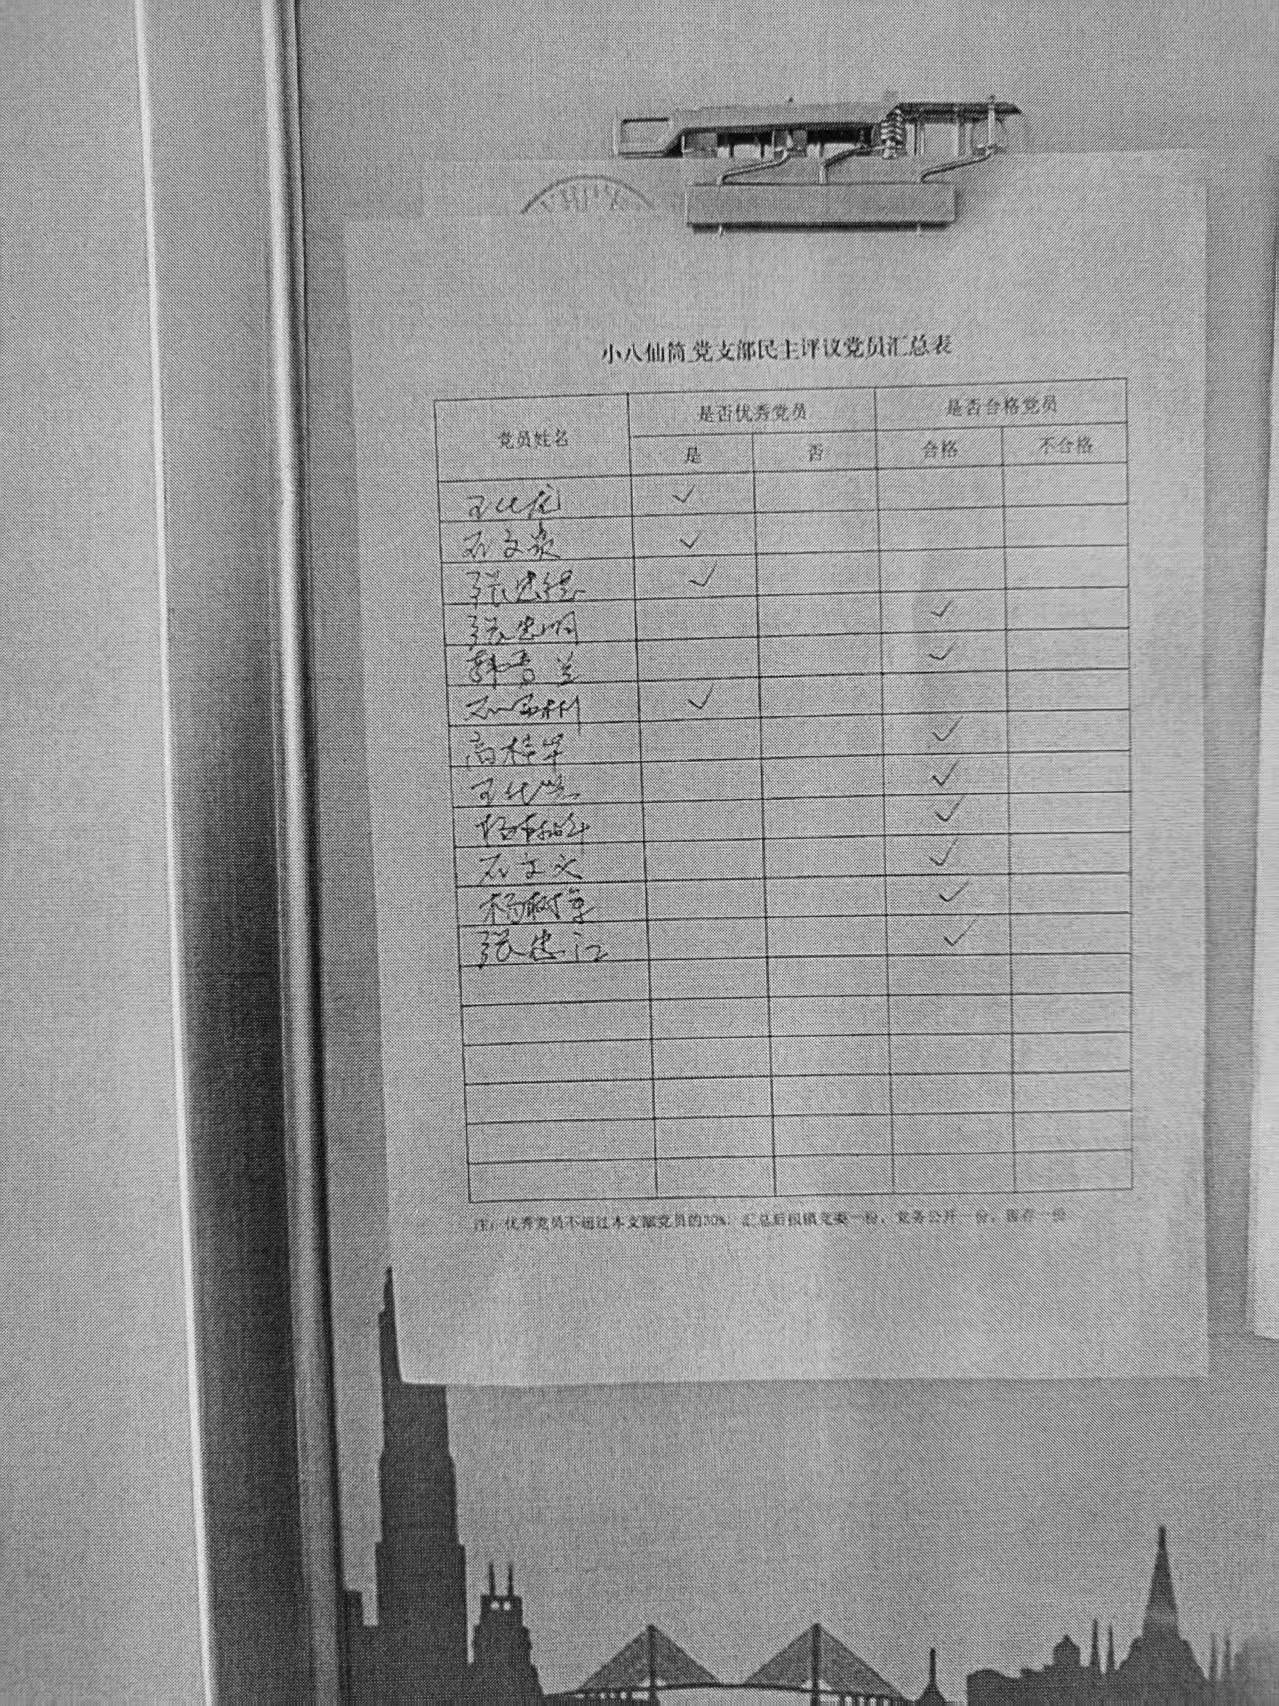 小八仙筒 党支部民主评议党员汇总表
党员姓名 是否优秀党员 是否合格党员
是 否 合格 不合格
✓
石文 ✓
张忠德 ✓
张忠明 ✓
韩 兰 ✓
石 ✓
高桂 ✓
王 ✓
✓
石文义 ✓
杨树 ✓
张忠江 ✓
注:优秀党员不超过本支部党员的30%,汇总后报镇党委一份,党务公开一份,留存一份